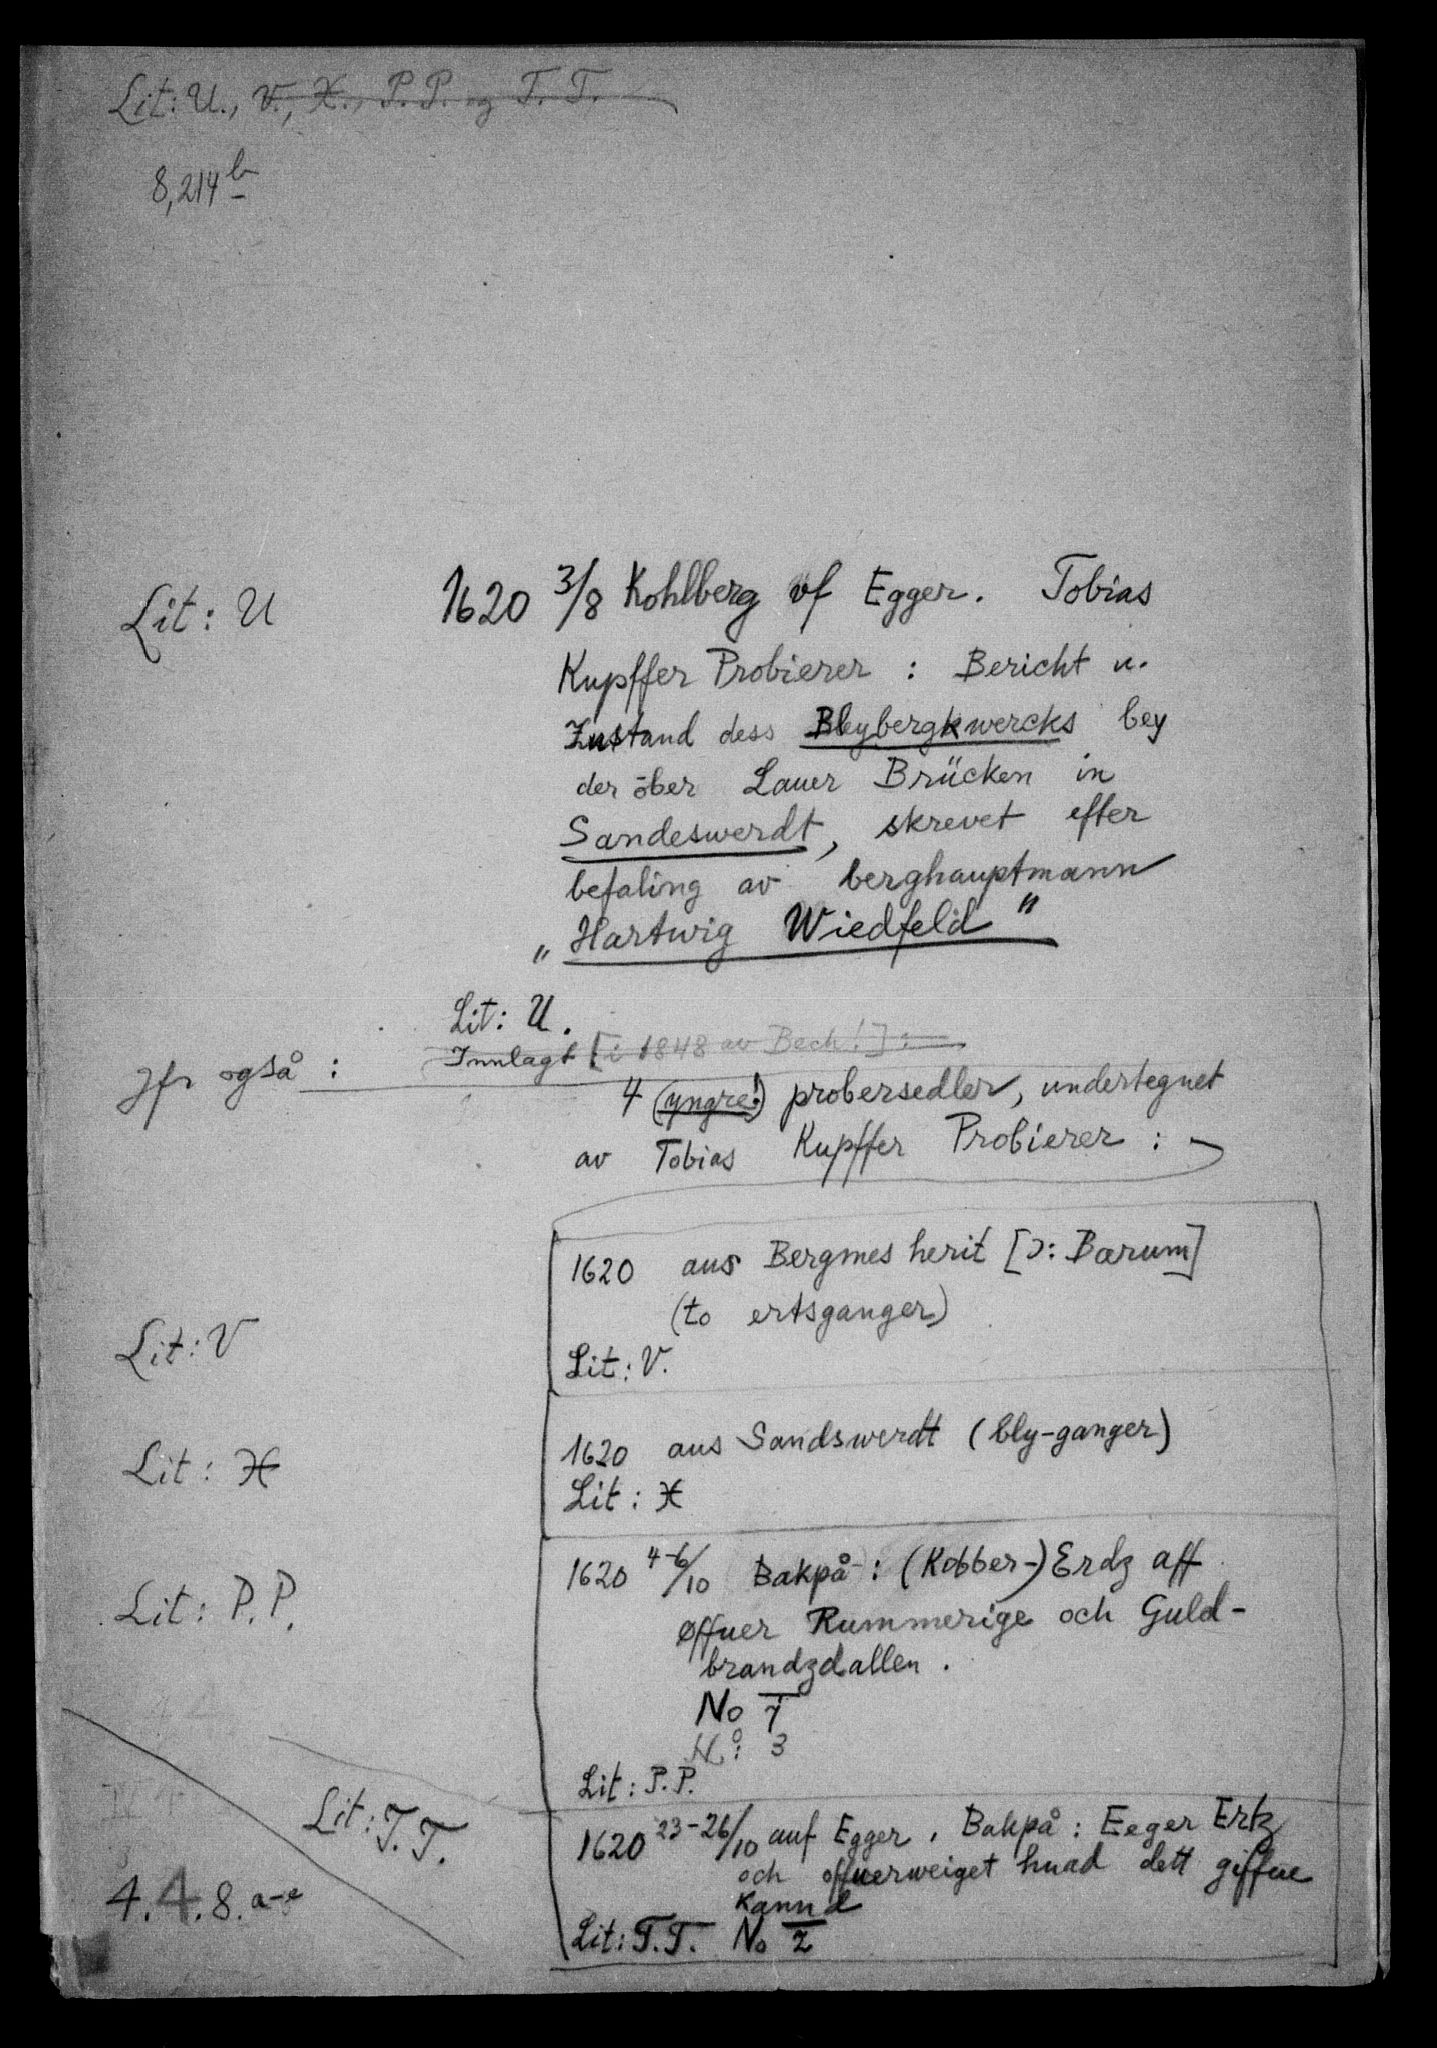 Lit: U., V., X., P.P. og T.T.
8,214 b
Lit: U
1620 3/8 Kohlberg uf Egger. Tobias
Kupffer Probierer : Bericht u.
Zustand dess Bleybergkwercks bey
der öber Lauer Brücken in
Sandeswerdt, skrevet efter
befaling av berghauptmann
„Hartwig Wiedfeld"
Lit: U.
jfr også : Innlagt [i 1848 av Bech!] :
4 (yngre!) probersedler, undertegnet
av Tobias Kupffer Probierer :
1620 aus Bergmes herit [ɔ: Bærum]
(to ertsganger)
Lit: V
Lit: V.
1620 aus Sandswerdt (bly-ganger)
Lit: X
Lit: X
1620 4-6/10 Bakpå : (Kobber-) Erdz aff
Lit: P.P.
øffuer Rummerige och Guld-
brandzdallen.
No 1
No: 3
Lit: P.P.
Lit: T.T.
1620 23-26/10 auf Egger. Bakpå : Eeger Ertz
och offuerweiget huad dett giffue
kannd
4.4.8.a-e
Lit: T.T. No 2